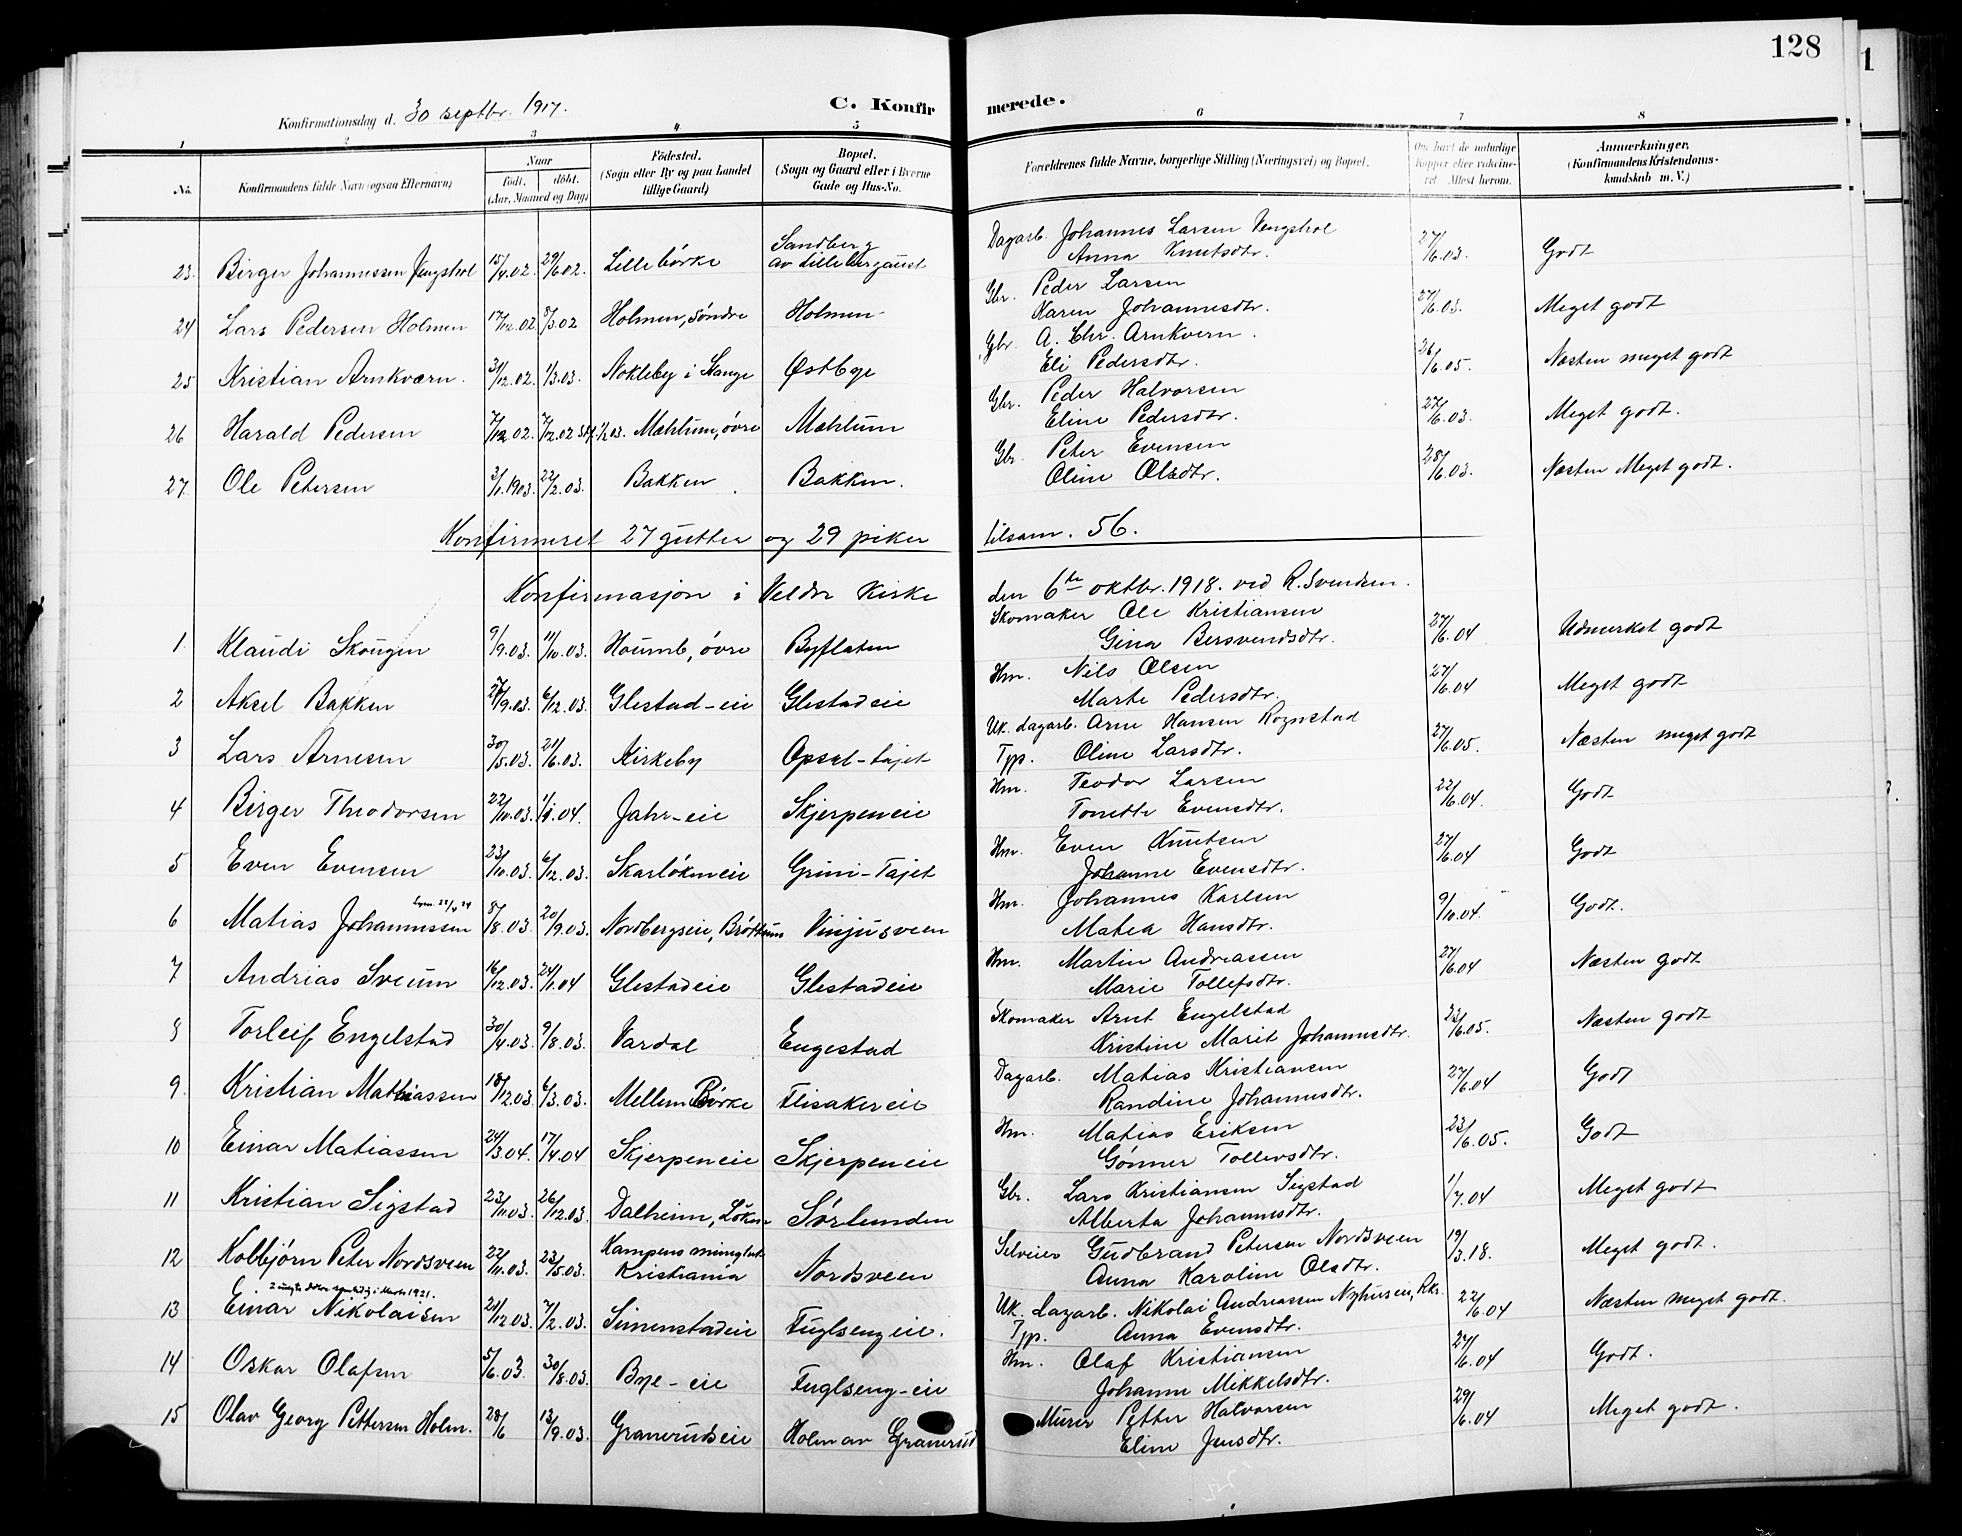 128
Konfirmationsdag d. 30 septbr. 1917.
C. Konfirmerede.
1 2 3 4 5 6 7 8
No. Konfirmandens fulde Navn (ogsaa Efternavn) Naar födt. döbt. (Aar, Maaned og Dag) Födested. (Sogn eller By og paa Landet tillige Gaard) Bopæl. (Sogn og Gaard eller i Byerne Gade og Hus-No. Forældrenes fulde Navne, borgerlige Stilling (Næringsvei) og Bopæl. Om havt de naturlige Kopper eller vaccineret. Attest herom. Anmerkninger. (Konfirmandens Kristendomskundskab m. V.)
23. Birger Johannessen Vengshol 15/4.02. 29/6.02. Lillebörke Sandberg av Lillebergaust Dagarb. Johannes Larsen Vengshol Anna Knutsdtr. 27/6.03. Godt
24 Lars Pedersen Holmen 17/12.02 8/3.02 Holmen, söndre Holmen Gbr. Peder Larsen Karen Johannesdtr. 27/6.03. Meget godt
25 Kristian Arnkværn. 31/12.02. 1/3.03. Nokleby i Stange Østbye Gbr. A. Chr. Arnkvern. Eli Pedersdtr. 26/6.05. Næsten meget godt
26 Harald Pedersen 7/12.02. 7/12.02 st. 1/2 03. Mæhlum, övre Mæhlum Gbr. Peder Halvorsen Eline Pedersdtr. 27/6.03. Meget godt.
27. Ole Petersen 3/1.1903. 22/2.03. Bakken Bakken. Gbr. Peter Evensen Oline Olsdtr. 28/6.03. Næsten Meget godt.
Konfirmeret 27 gutter og 29 piker tilsam. 56.
Konfirmasjon i Veldre Kirke den 6te oktbr. 1918. ved R. Svendsen.
1. Klaudi Skougen 9/9.03. 11/10.03. Houmb, övre Byflaten Skomaker Ole Kristiansen Gina Bersvendsdtr. 27/6.04 Udmerket godt
2 Aksel Bakken 27/9.03. 6/12.03. Glestad-eie Glestadeie Hm. Nils Olsen Marte Pedersdtr. 27/6.04 Meget godt
3 Lars Arnesen 30/5.03. 21/6.03. Kirkeby Opsal-tajet Uk. dagarb. Arne Hansen Rognstad Tjp. Oline Larsdtr. 27/6.05. Næsten meget godt
4 Birger Theodorsen 22/10.03. 1/1.04. Jahr-eie Skjerpeneie Hm. Teodor Larsen Tonette Evensdtr. 22/6.04. Godt
5 Even Evensen 23/10.03. 6/12.03. Skarlökeneie Grini-Tajet Hm. Even Knutsen Johanne Evensdtr. 27/6.04 Godt
6 Matias Johannessen 8/8.03. 20/9.03. Nordbergseie, Bröttum Vinjusveen Hm. Johannes Karlsen Matea Hansdtr. 9/10.04. Godt.
7 Andrias Sveum 16/12.03. 24/1.04 Glestadeie Glestadeie Hm. Martin Andreassen Marie Tollefsdtr. 27/6.04 Næsten godt
8 Torleif Engelstad 30/4.03. 9/8.03. Vardal Engestad Skomaker Arnt Engelstad Kristine Marit Johannesdtr. 23/6.05. Næsten godt
9. Kristian Mathiassen 18/12.03 6/3.03. Mellem Börke Flisakereie Dagarb. Matias Kristiansen Randine Johannesdtr. 27/6.04 Godt
10 Einar Matiassen 24/3.04. 17/4.04 Skjerpeneie Skjerpeneie Hm. Matias Eriksen Gönner Tollevsdtr. 23/6.05. Godt
11 Kristian Sigstad 23/11.03 26/12.03. Dalheim, Löken Sörlunden Gbr. Lars Kristiansen Sigstad Alberta Johannesdtr. 1/7.04 Meget godt
12 Kolbjörn Peter Nordsveen 22/11.03. 23/5.03. Kampens menighet Kristiania Nordsveen Selveier Gudbrand Petersen Nordsveen Anna Karoline Olsdtr. 19/3.18. Meget godt.
13 Einar Nikolaisen 21/12.03. 7/2.03. Simenstadeie Fuglsengeie. Uk. dagarb. Nikolai Andreassen Nyhuseie, Rkr. Tjp. Anna Evensdtr. 22/6.04 Næsten meget godt.
14 Oskar Olafsen 5/6.03. 30/8.03. Bye-eie Fuglseng-eie Hm. Olaf Kristiansen Johanne Mikkelsdtr. 27/6.04 Godt.
15 Olav Georg Pettersen Holm. 28/6 13/9.03. Granerudseie Holm av Granerud Murer Petter Halvorsen Eline Jensdtr. 29/6.04 Meget godt.